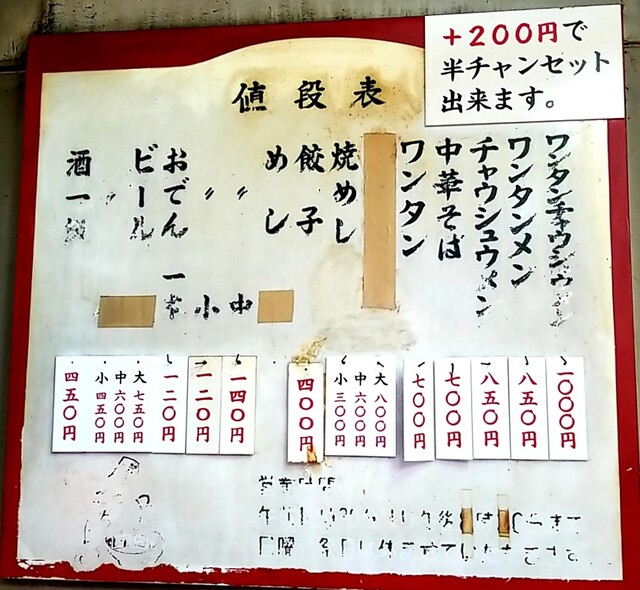 +200円で
半チャンセット
出来ます。
値段表
ワンタンチャウシュウメン
ワンタンメン
チャウシュウメン
中華そば
ワンタン
焼めし
餃子
めし
〃 中
〃 小
おでん 一
ビール
〃
酒一級
一〇〇〇円
八五〇円
八五〇円
七〇〇円
七〇〇円
大 八〇〇円
中 六〇〇円
小 三〇〇円
四〇〇円
一四〇円
一二〇円
一二〇円
大 七五〇円
中 六〇〇円
小 四五〇円
四五〇円
営業時間